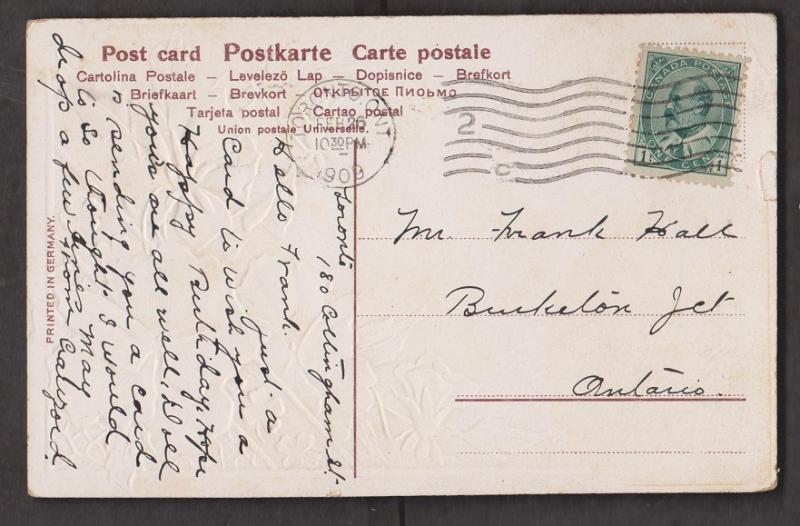 Post card Postkarte Carte postale
Cartolina Postale – Levelező Lap – Dopisnice – Brefkort
Briefkaart – Brevkort – ОТКРЫТОЕ ПИСЬМО
Tarjeta postal Cartao postal
Union postale Universelle.
TORONTO
FEB 26
10 30 PM
1909
2
CANADA POSTAGE
ONE CENT
1 1
PRINTED IN GERMANY.
Toronto
180 Ollingham St.
Hello Frank.
Just a
Card to wish you a
Happy Birthday, Hope
you's are all well. Nell
is sending you a card
to So thought I would
drop a few lines May
From
Mr. Frank Hall
Burketon Jct
Ontario.